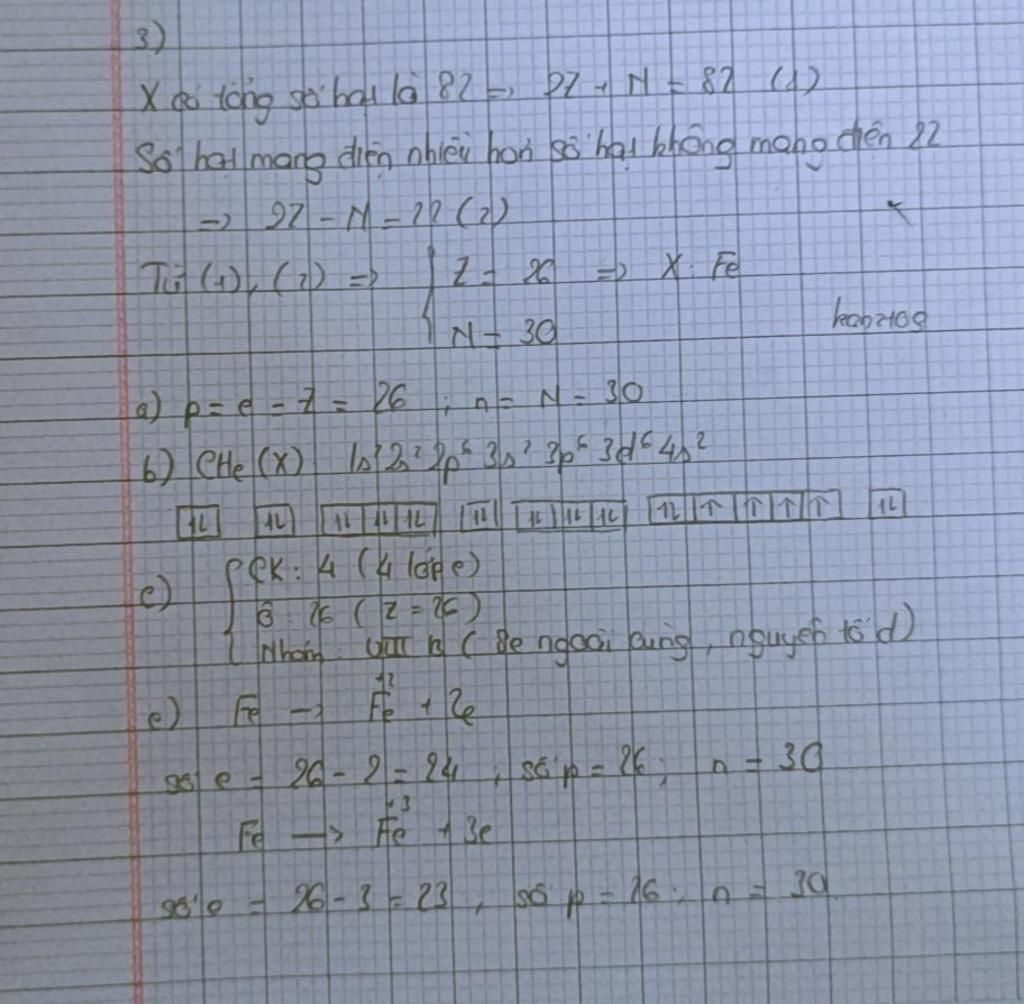 3)
X có tổng số hạt là 82 => 2Z + N = 82 (1)
Số hạt mang điện nhiều hơn số hạt không mang điện 22
=> 2Z - N = 22 (2)
Từ (1), (2) => { Z = 26 => X: Fe
N = 30
kab2109
a) p = e = Z = 26 ; n = N = 30
b) CHe (X) 1s² 2s² 2p⁶ 3s² 3p⁶ 3d⁶ 4s²
[↑↓] [↑↓] [↑↓|↑↓|↑↓] [↑↓] [↑↓|↑↓|↑↓] [↑↓|↑|↑|↑|↑] [↑↓]
c) { CK: 4 (4 lớp e)
Ô: 26 (Z = 26)
Nhóm: VIII B (8e ngoài cùng, nguyên tố d)
e) Fe -> Fe⁺² + 2e
số e = 26 - 2 = 24, số p = 26; n = 30
Fe -> Fe⁺³ + 3e
số e = 26 - 3 = 23, số p = 26; n = 30